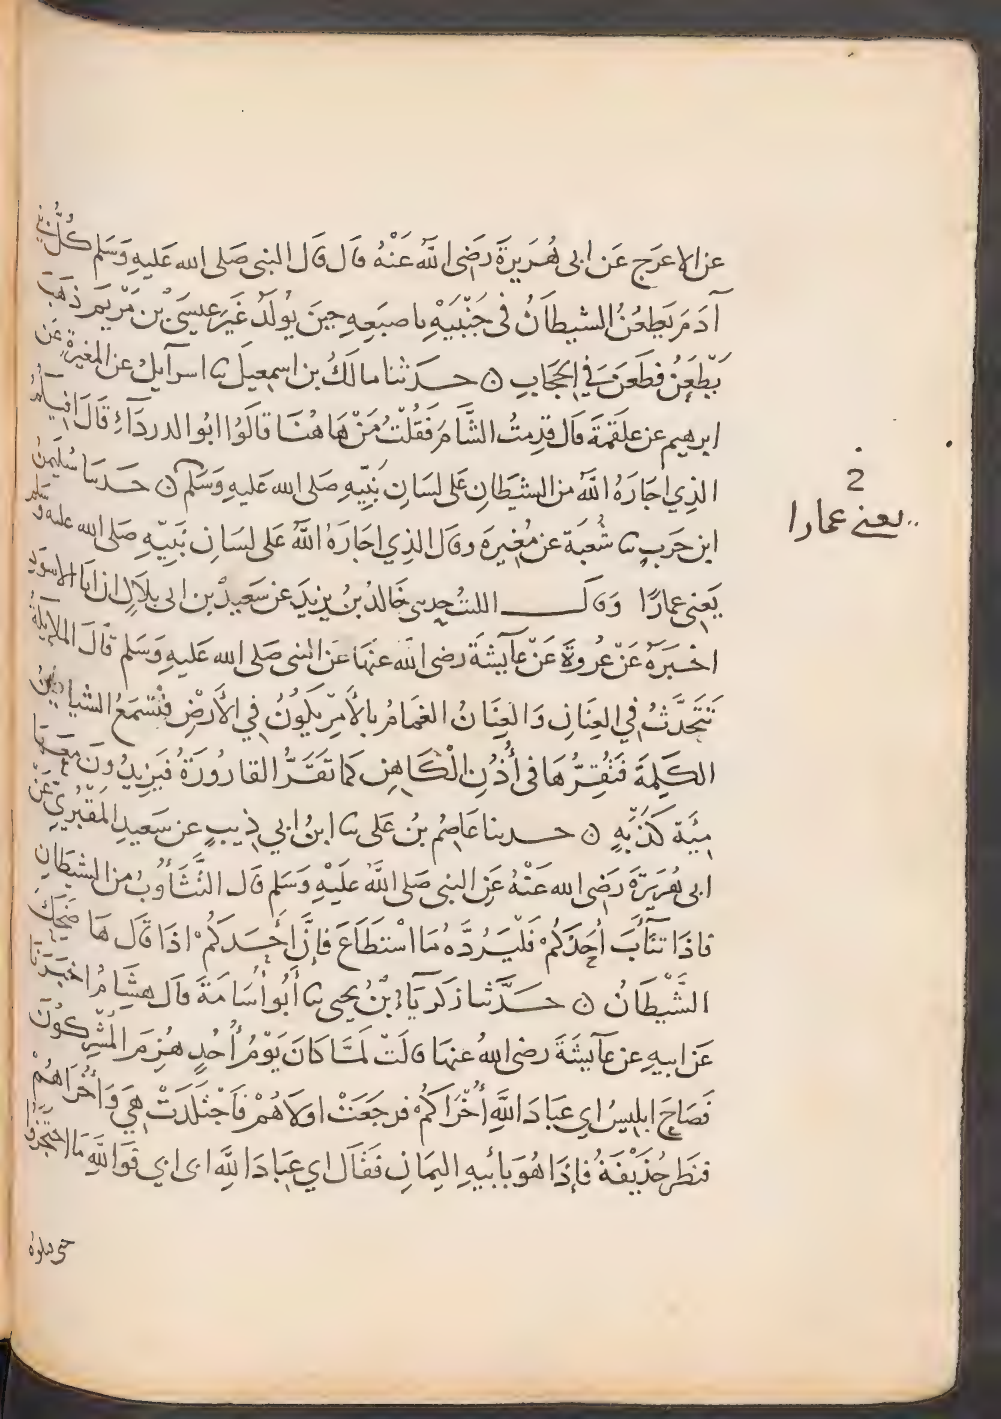 عن الاعرج عن ابى هُرَيرةَ رَضى اللهُ عَنْهُ قال قال النبى صَلى الله عَليهِ وَسَلم كُلُّ بَنى
آدَمَ يَطعُنُ الشيطَانُ فى جَنْبَيْهِ باصبَعِهِ حِينَ يُولَدُ غَيرَ عِيسَىَ بْن مَرْيَم ذهَبَ
يَطعَنُ فطَعَنَ فِي الحِجَابِ ه حدثنا مالكُ بن اسمعِيلَ ثنا اسرآئيلُ عن المغيرةِ عَن
ابرهيم عن علقمَةَ قال قدِمتُ الشَّامَ فَقُلْتُ مَنْ هَا هُنَا قالوُا ابوُ الدردَآءِ قَالَ افيكُمُ
الذِي اجَارَهُ اللهُ من الشيطانِ عَلى لسَانِ نَبِيّهِ صَلى الله عَليهِ وَسَلم ه حدثنا سُليمنُ
ابن حَربٍ ثنا شُعبَة عن مُغِيرَة وقال الذِي اجَارَهُ اللهُ عَلى لِسَانِ نَبِيّهِ صَلى الله عليه وَسَلم
يَعنى عمارًا وَقالَ الليث حدثنى خَالدُ بنُ يزيدَ عَن سَعيدْ بن ابى هِلَالٍ ان ابَا الاسوَدِ
اخبَرَهُ عَنْ عُروةَ عَنْ عآيشَةَ رضى الله عنهَا عَن النبى صَلى الله عَليهِ وَسَلم قالَ الملآيكةُ
تَتَحَدَّثُ فِي العِنَانِ وَالعِنَانُ الغمَامُ بالأمْرِ يَكوُنُ فِي الأَرْضِ فَتسْمَعُ الشياطينُ
الكَلِمَةَ فَتُقِرُّهَا فى أُذُنِ الْكَاهِنِ كَما تُقَرُّ القَارُورَةُ فيَزِيدُونَ مَعَهَا
مِئَةَ كَذْبَهٍ ه حدثنا عَاصِمُ بْنُ عَلى ثنا ابنُ ابي ذِيبٍ عن سَعيدِ المَقْبُرِيِّ عَنْ
ابى هُرَيَرةَ رَضى الله عَنْهُ عَنِ النبى صَلى اللهُ عَليْهِ وَسَلم قال التَّثَاؤُبُ من الشيْطَانِ
فاذَا تثآءَبَ أحَدَكُمْ فَلْيَرُدَّهُ مَا اسْتَطَاعَ فَإنَّ أحَدَكُمْ اذَا قَالَ هَا ضَحِكَ
الشَّيْطَانُ ه حَدَّثنا زكَريَآءُ بْنُ يحيى ثنا أَبُو أُسَامَةَ قال هشَامُ اخبَرَنَا
عَن ابيهِ عن عآيشَةَ رضى اللهُ عنهَا قالَتْ لمَّا كانَ يَوْمُ أُحُدٍ هُزِمَ المُشْرِكُونَ
فَصَاحَ ابلِيسُ اي عبَادَ اللَّهِ أُخْرَاكُمْ فرجَعَتْ اولَاهُمْ فَاجْتَلَدَتْ هِيَ وَأُخْرَاهُمْ
فنَظَر حُذَيْفَةُ فإذَا هُوَ بأبيهِ اليمَانِ فَقَالَ اي عِبَادَ اللَّهِ ابى ابي فوَاللَّهِ مَا احتَجَزُوا
حتى قتلوهُ
2
يعنى عمارا